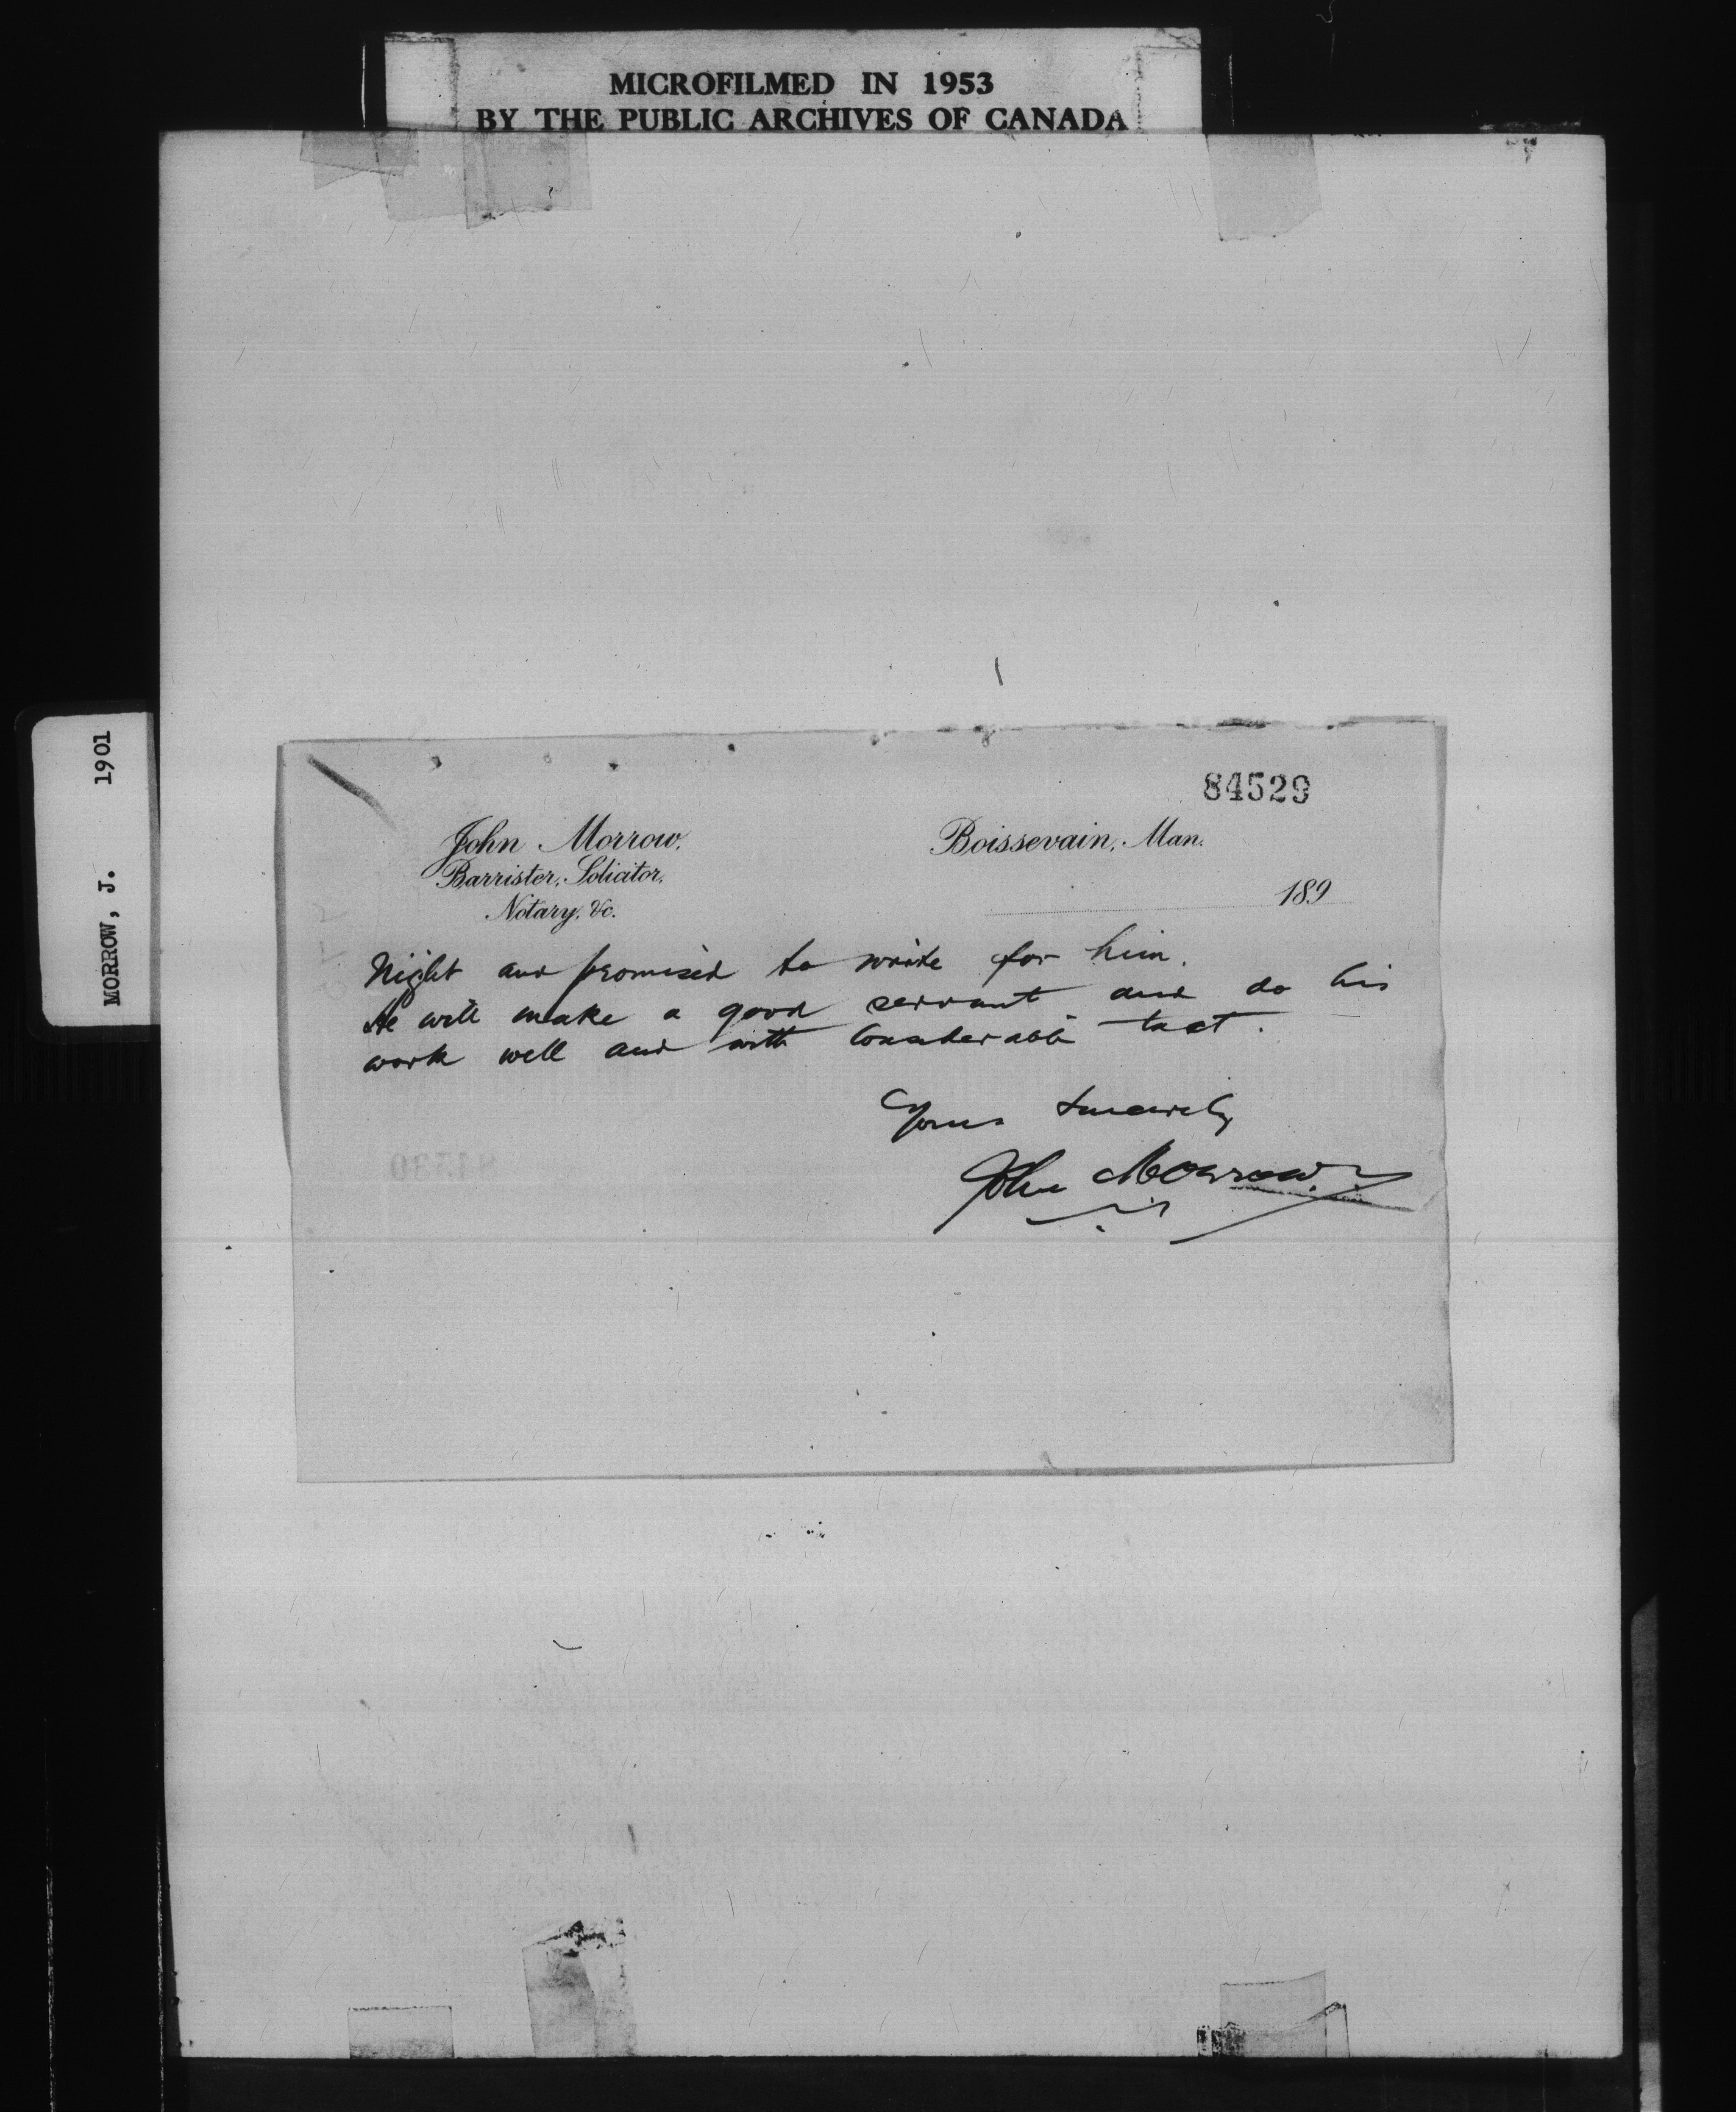 MICROFILMED IN 1953
BY THE PUBLIC ARCHIVES OF CANADA
MORROW, J. 1901
84529
John Morrow,
Barrister, Solicitor,
Notary, &c.
Boissevain, Man.
189
Night and promised to write for him.
He will make a good servant and do his
work well and with considerable tact.
Yours Sincerely
John Morrow.
84530